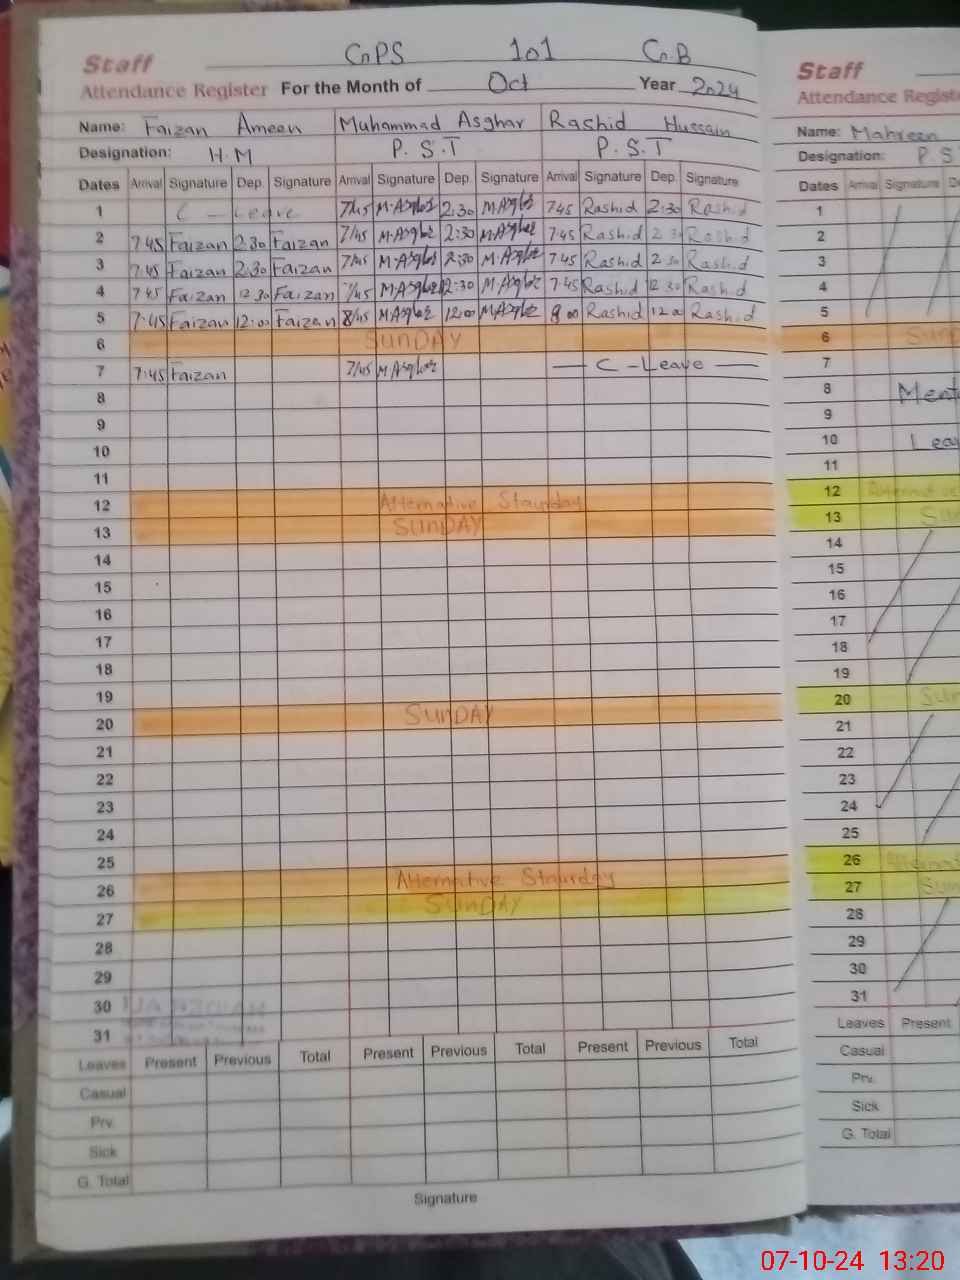 Staff GPS 101 G.B
Attendance Register For the Month of Oct Year 2024
Name: Faizan Ameen Muhammad Asghar Rashid Hussain
Designation: H.M P.S.T P.S.T
Dates Arrival Signature Dep. Signature Arrival Signature Dep. Signature Arrival Signature Dep. Signature
1 C - Leave 7/45 M.Asghr 2:30 M.Asghr 7:45 Rashid 2:30 Rashid
2 7:45 Faizan 2:30 Faizan 7/45 M.Asghr 2:30 M.Asghr 7:45 Rashid 2 30 Rashid
3 7:45 Faizan 2:30 Faizan 7/45 M.Asghr 2:30 M.Asghr 7:45 Rashid 2 30 Rashid
4 7:45 Faizan 12.30 Faizan 7/45 M.Asghr 12:30 M.Asghr 7:45 Rashid 12 30 Rashid
5 7:45 Faizan 12:00 Faizan 8/45 M.Asghr 12:00 M.Asghr 8 00 Rashid Rashid
6 SUNDAY
7 7:45 Faizan 7/45 M.Asghr C - Leave
8
9
10
11
12 Alternative Staurday
13 SUNDAY
14
15
16
17
18
19
20 SUNDAY
21
22
23
24
25
26 Alternative Staurday
27 SUNDAY
28
29
30
31
Leaves Present Previous Total Present Previous Total Present Previous Total
Casual
Prv.
Sick
G. Total
Signature
Staff
Attendance
Name: Mahreen
Designation: P S
Dates Arrival Signature
1
2
3
4
5
6
7
8
9
10
11
12
13
14
15
16
17
18
19
20
21
22
23
24
25
26
27
28
29
30
31
Leaves Present
Casual
Prv.
Sick
G. Total
07-10-24 13:20